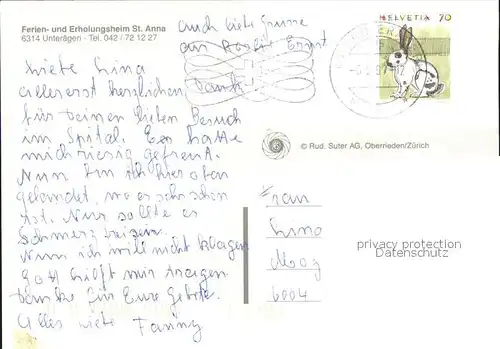 Ferien- und Erholungsheim St. Anna
6314 Unterägeri - Tel. 042 / 72 12 27
auch liebe Grüsse
an Ernst
HELVETIA 70
Liebe Lina
allererst herzlichen Dank
für Deinen lieben Besuch
im Spital. Es hatte
mich riesig gefreut.
Nun bin ich hier oben
gelandet, wo es sehr schön
ist. Nur sollte es
Schmerz
Nun ich will nicht klagen
Gott hilft mir tragen.
Danke für Eure Gebete.
Alles liebe Fanny
© Rud. Suter AG, Oberrieden/Zürich
Frau
Lina
Moos
6004
privacy protection
Datenschutz